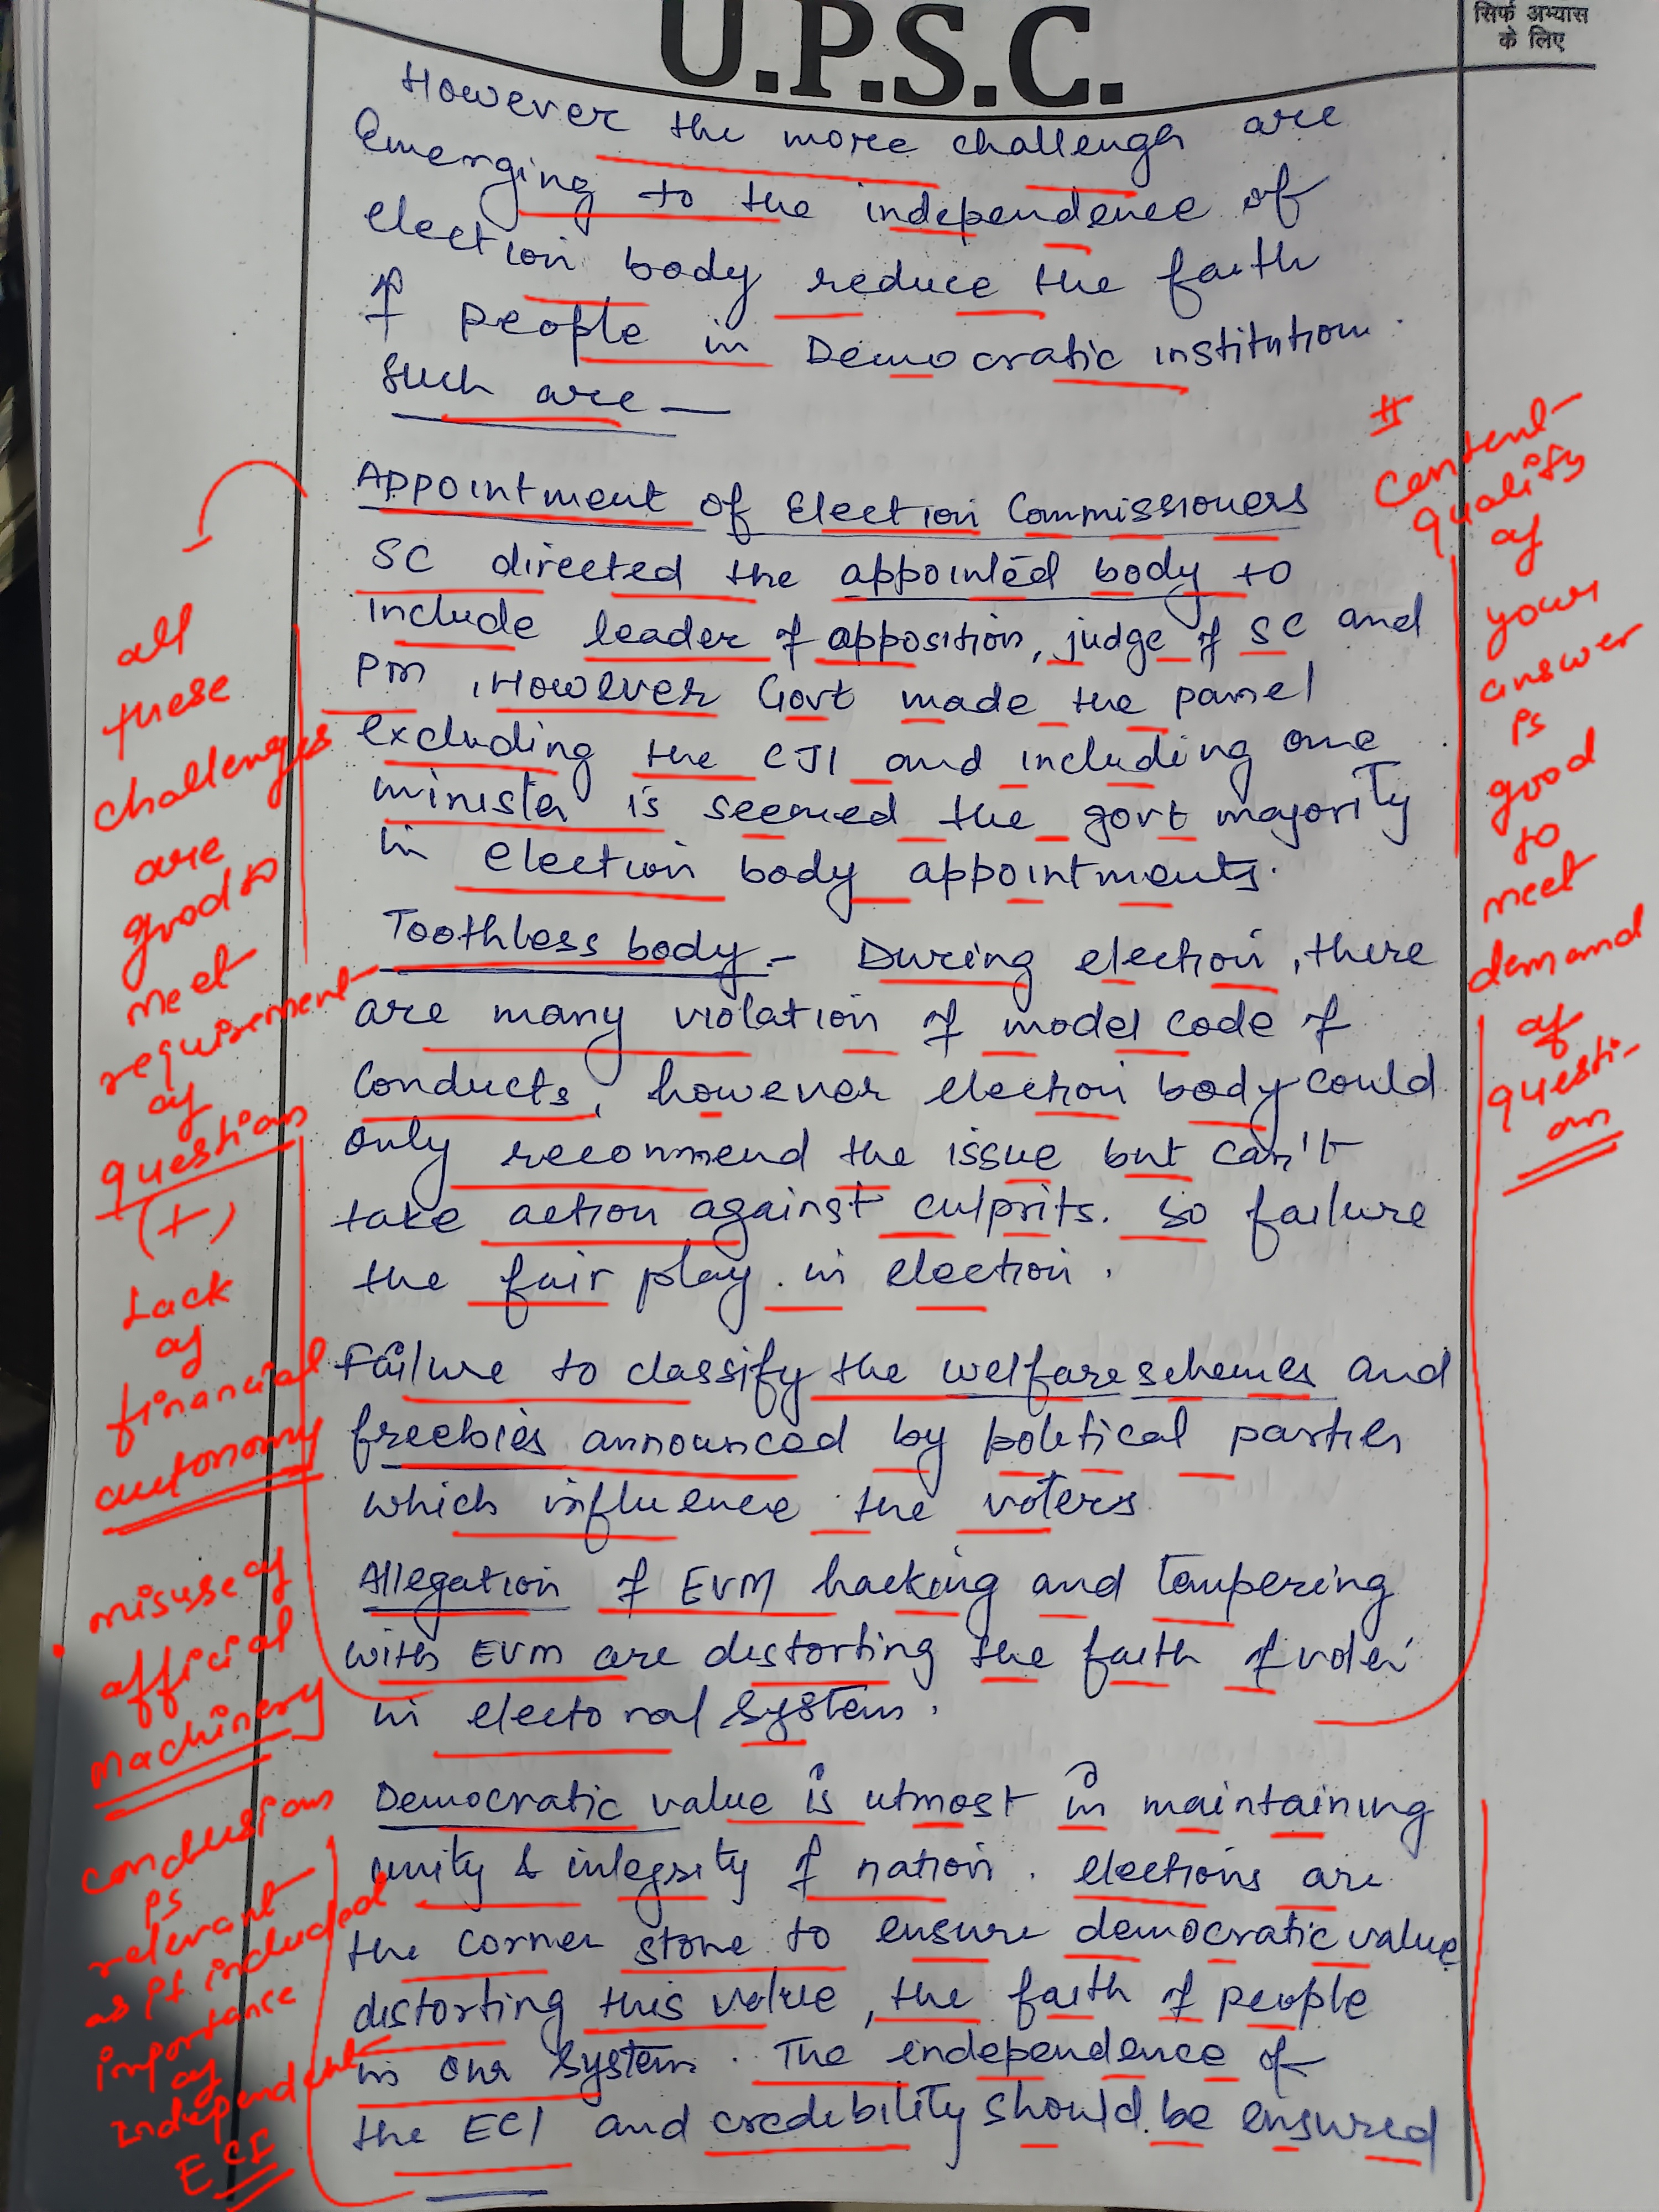 U.P.S.C.
सिर्फ अभ्यास
के लिए
However the more challenges are
Emerging to the independence of
election body reduce the faith
of people in Democratic institution.
Such are —
Appointment of Election Commissioners
SC directed the appointed body to
include leader of opposition, judge of SC and
PM, However Govt made the panel
excluding the CJI and including one
minister is seemed the govt majority
in election body appointments.
Toothless body - During election, there
are many violation of model code of
Conducts, however election body could
only recommend the issue but can't
take action against culprits. So failure
the fair play in election.
Failure to classify the welfare schemes and
freebies announced by political parties
which influence the voters
Allegation of EVM hacking and tampering
with EVM are distorting the faith of voter
in electoral system.
Democratic value is utmost in maintaining
unity & integrity of nation. Elections are
the corner stone to ensure democratic value
distorting this value, the faith of people
in our system. The independence of
the ECI and credibility should be ensured
all
these
challenges
are
good to
meet
requirement
of
question
(+)
Lack
of
financial
autonomy
misuse of
official
Machinery
conclusion
is
relevant
as it included
importance
of
Independent
ECI
#
Content
quality
of
your
answer
is
good
to
meet
demand
of
questi-
on